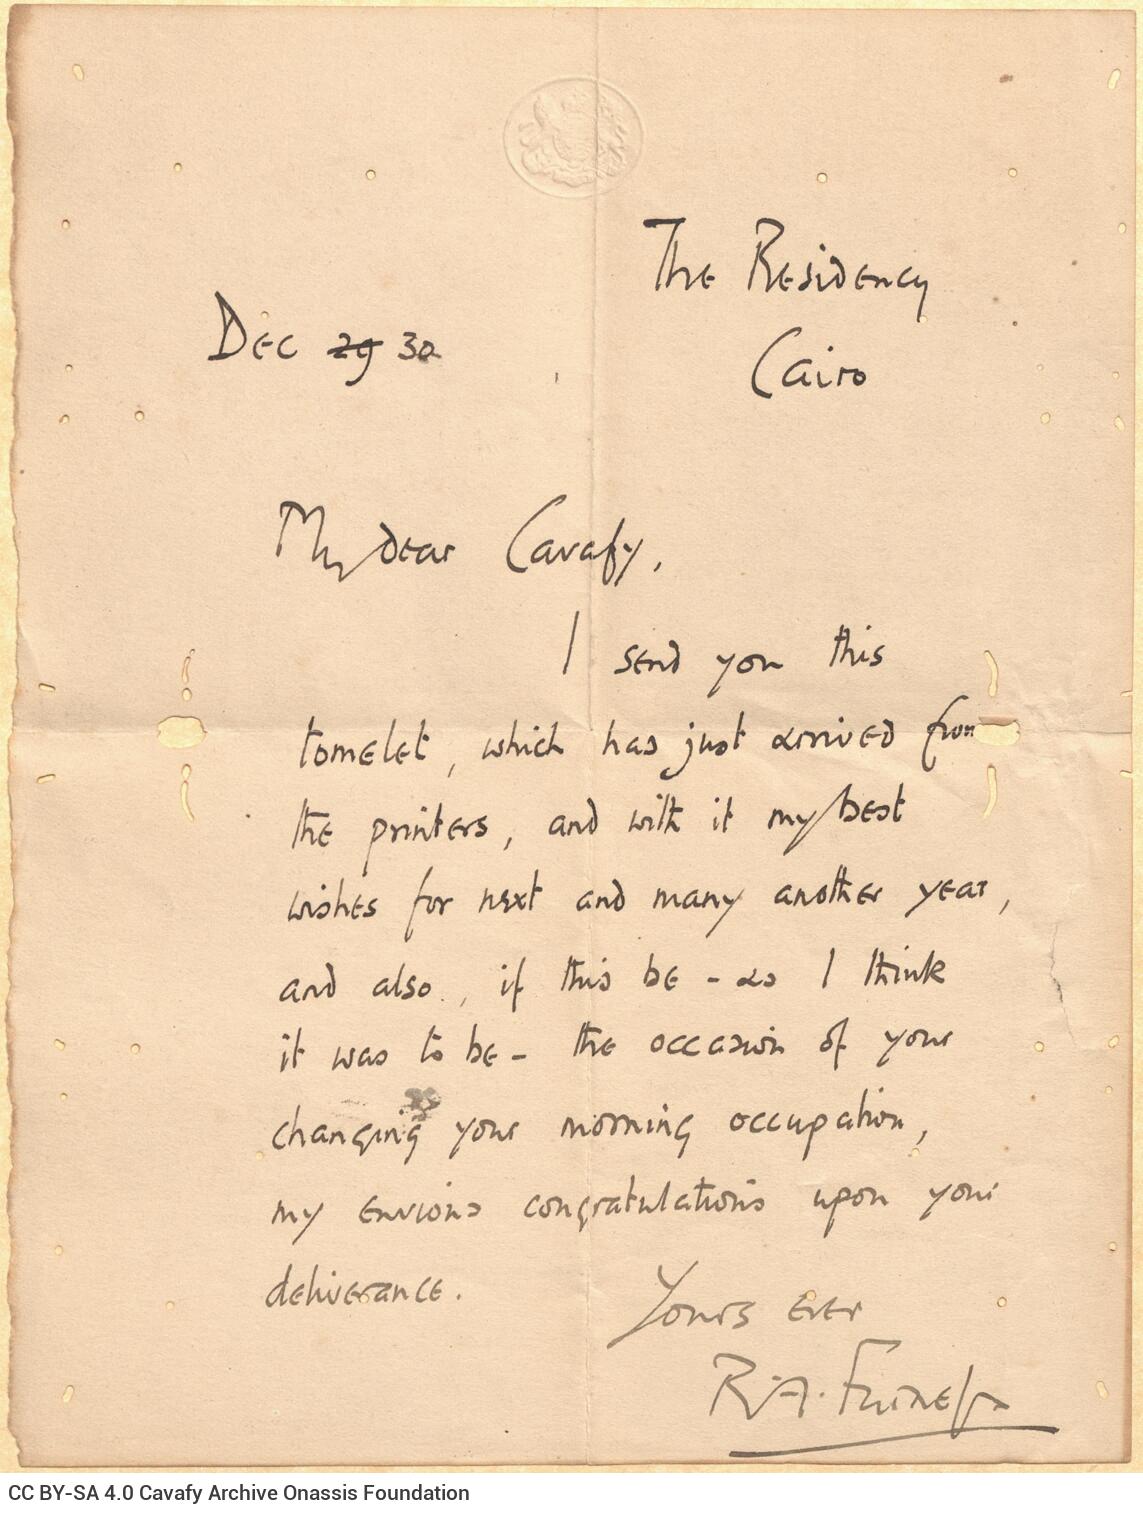 The Residency
Cairo
Dec 29 30
My dear Cavafy,
I send you this
tomelet, which has just arrived from
the printers, and with it my best
wishes for next and many another year,
and also, if this be - as I think
it was to be - the occasion of your
changing your morning occupation,
my envious congratulations upon your
deliverance.
Yours ever
R.A. Furness
CC BY-SA 4.0 Cavafy Archive Onassis Foundation